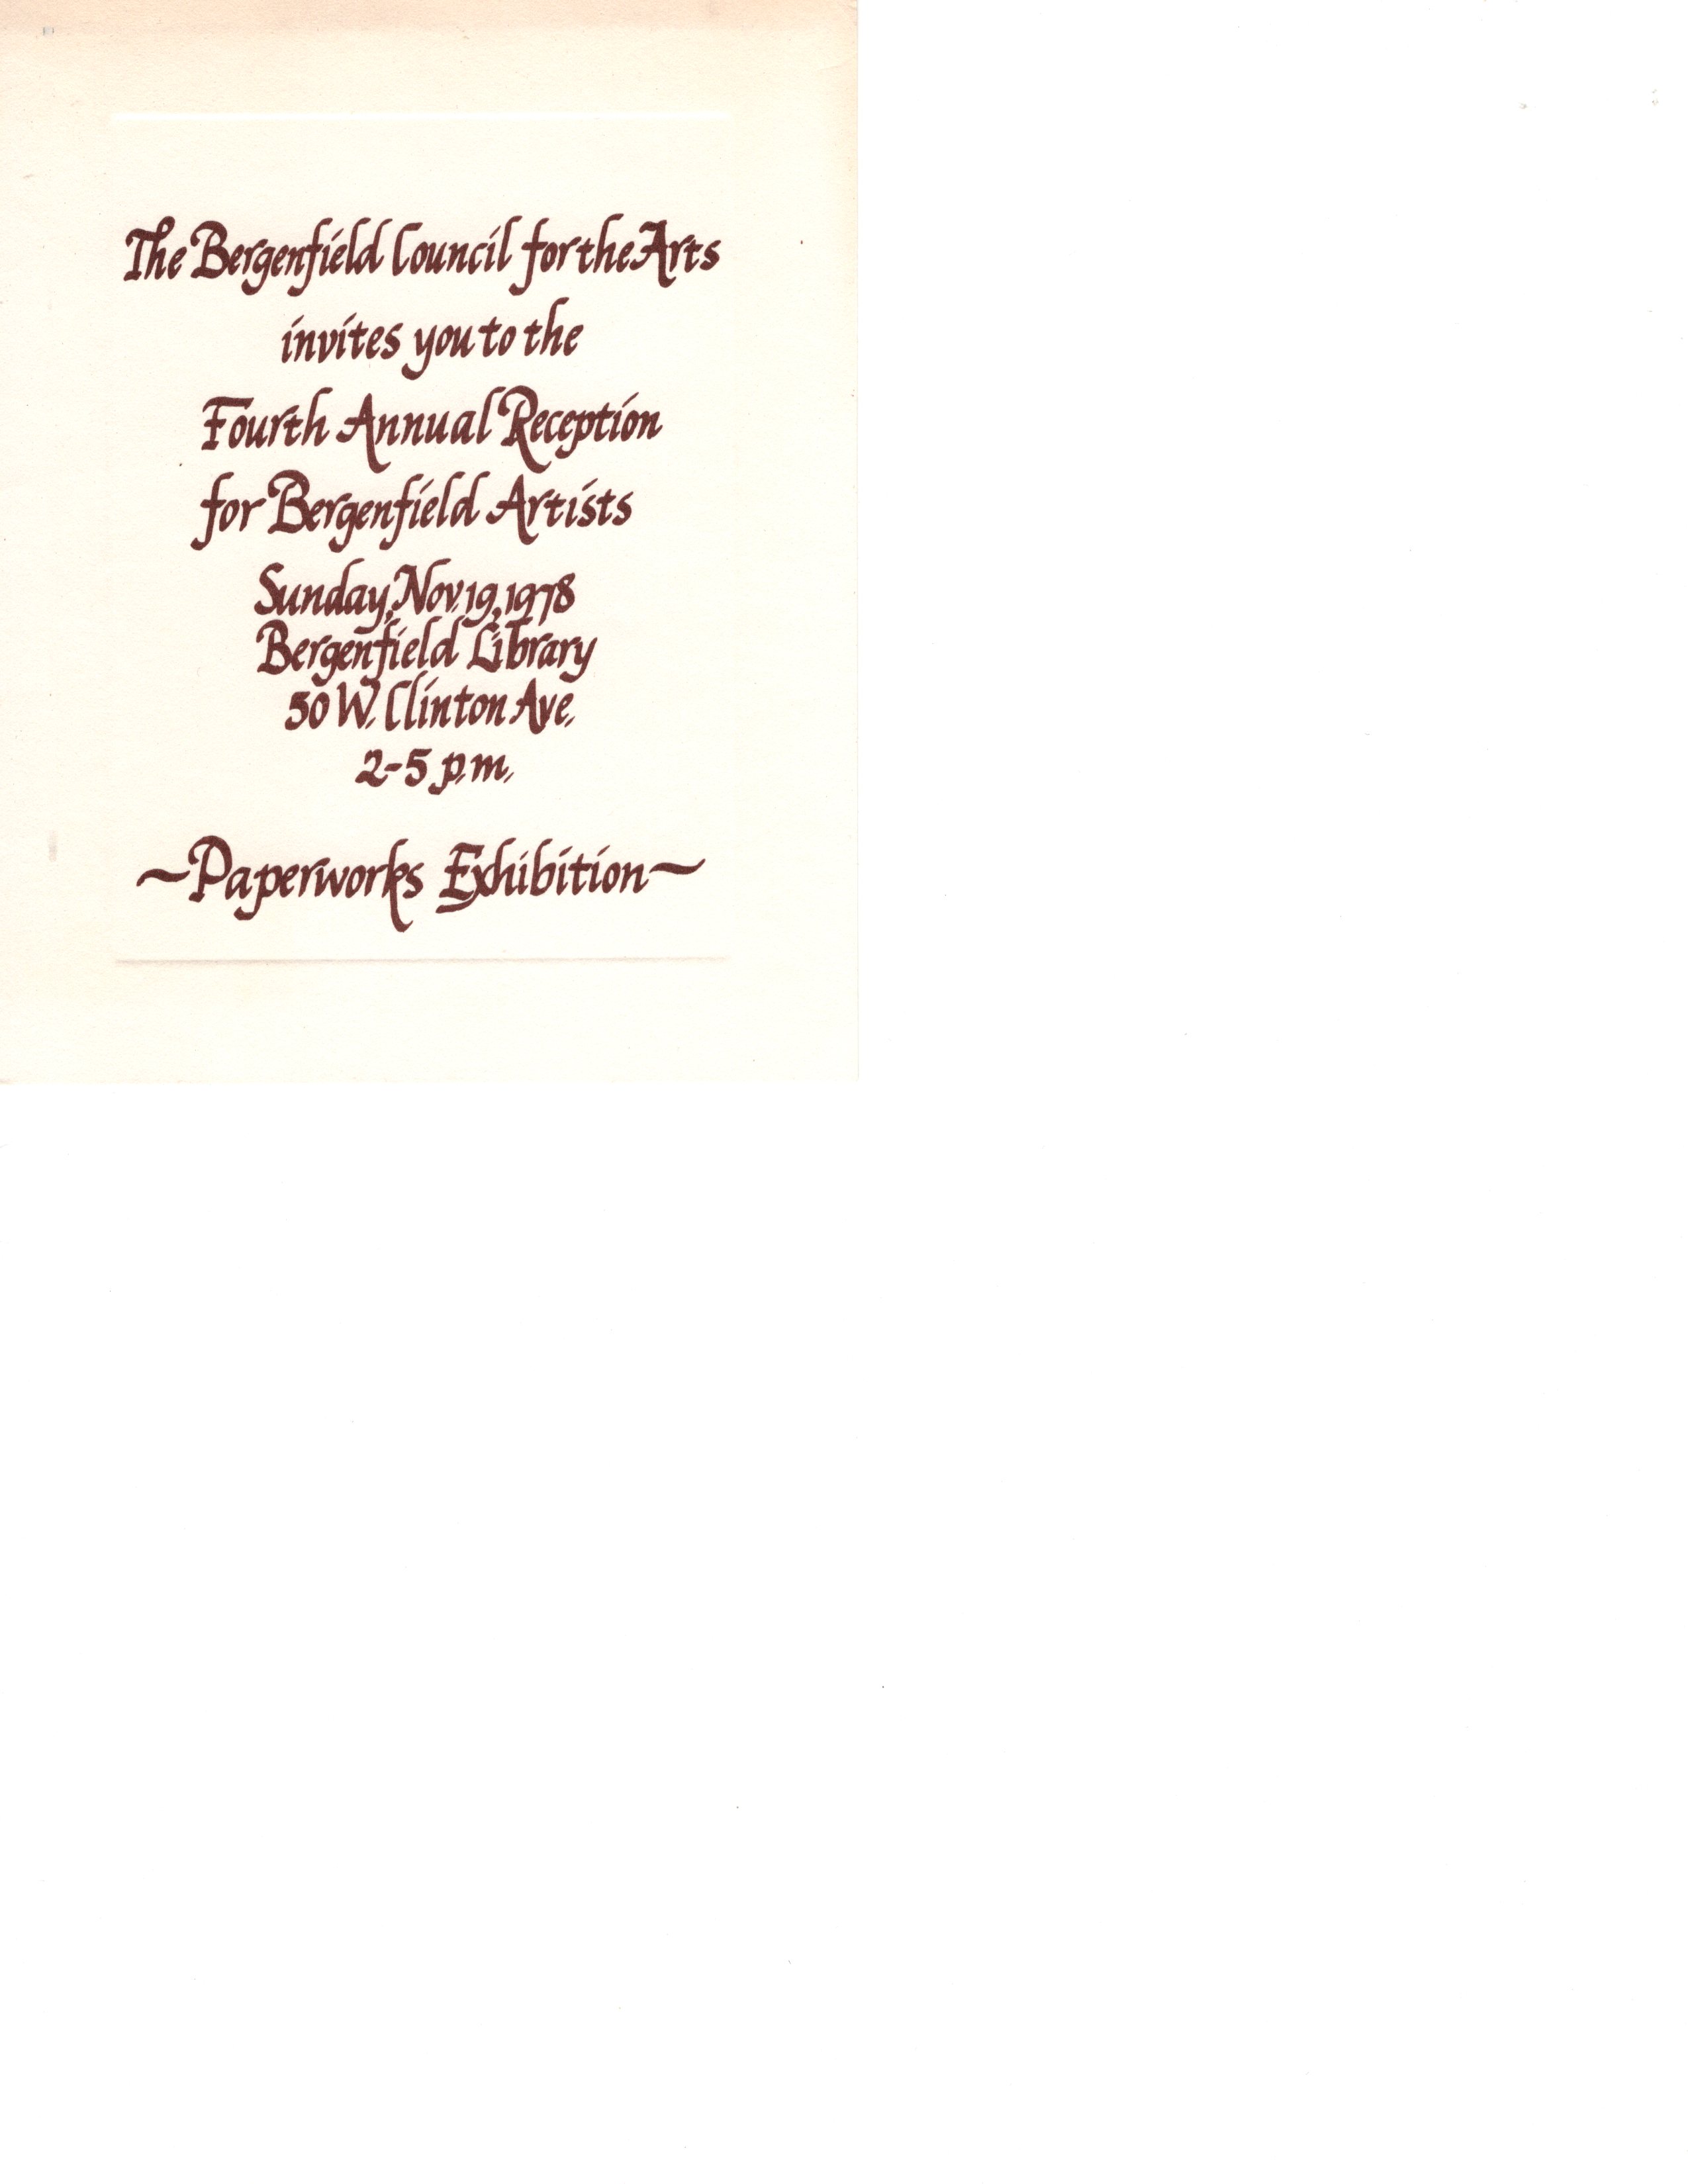 The Bergenfield Council for the Arts
invites you to the
Fourth Annual Reception
for Bergenfield Artists
Sunday, Nov. 19, 1978
Bergenfield Library
50 W. Clinton Ave.
2-5 p.m.
~Paperworks Exhibition~